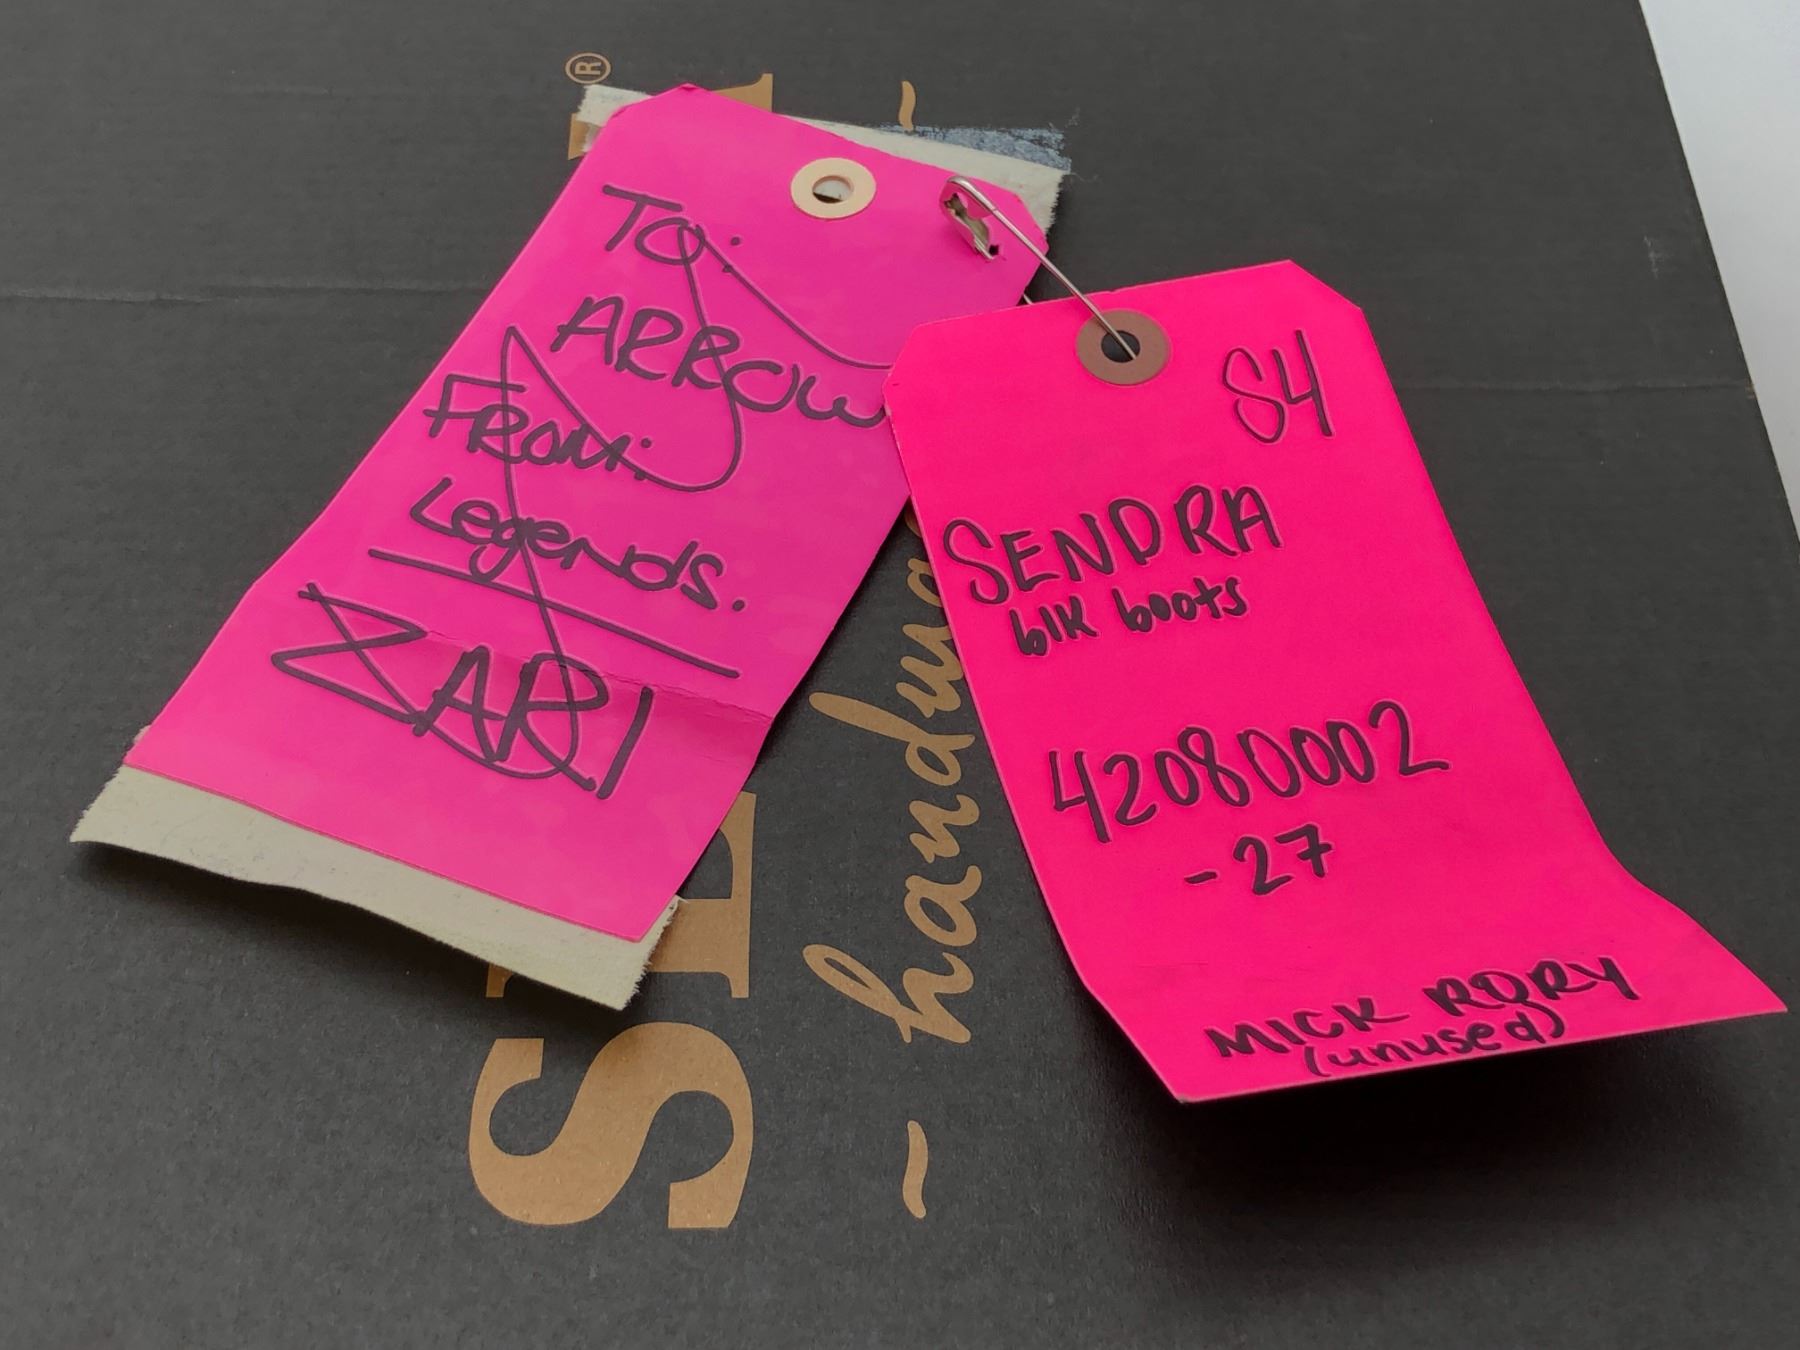 TO:
ARROW
FROM:
Legends.
ZARI
S4
SENDRA
blk boots
42080002
-27
MICK RORY
(unused)
®
- handma